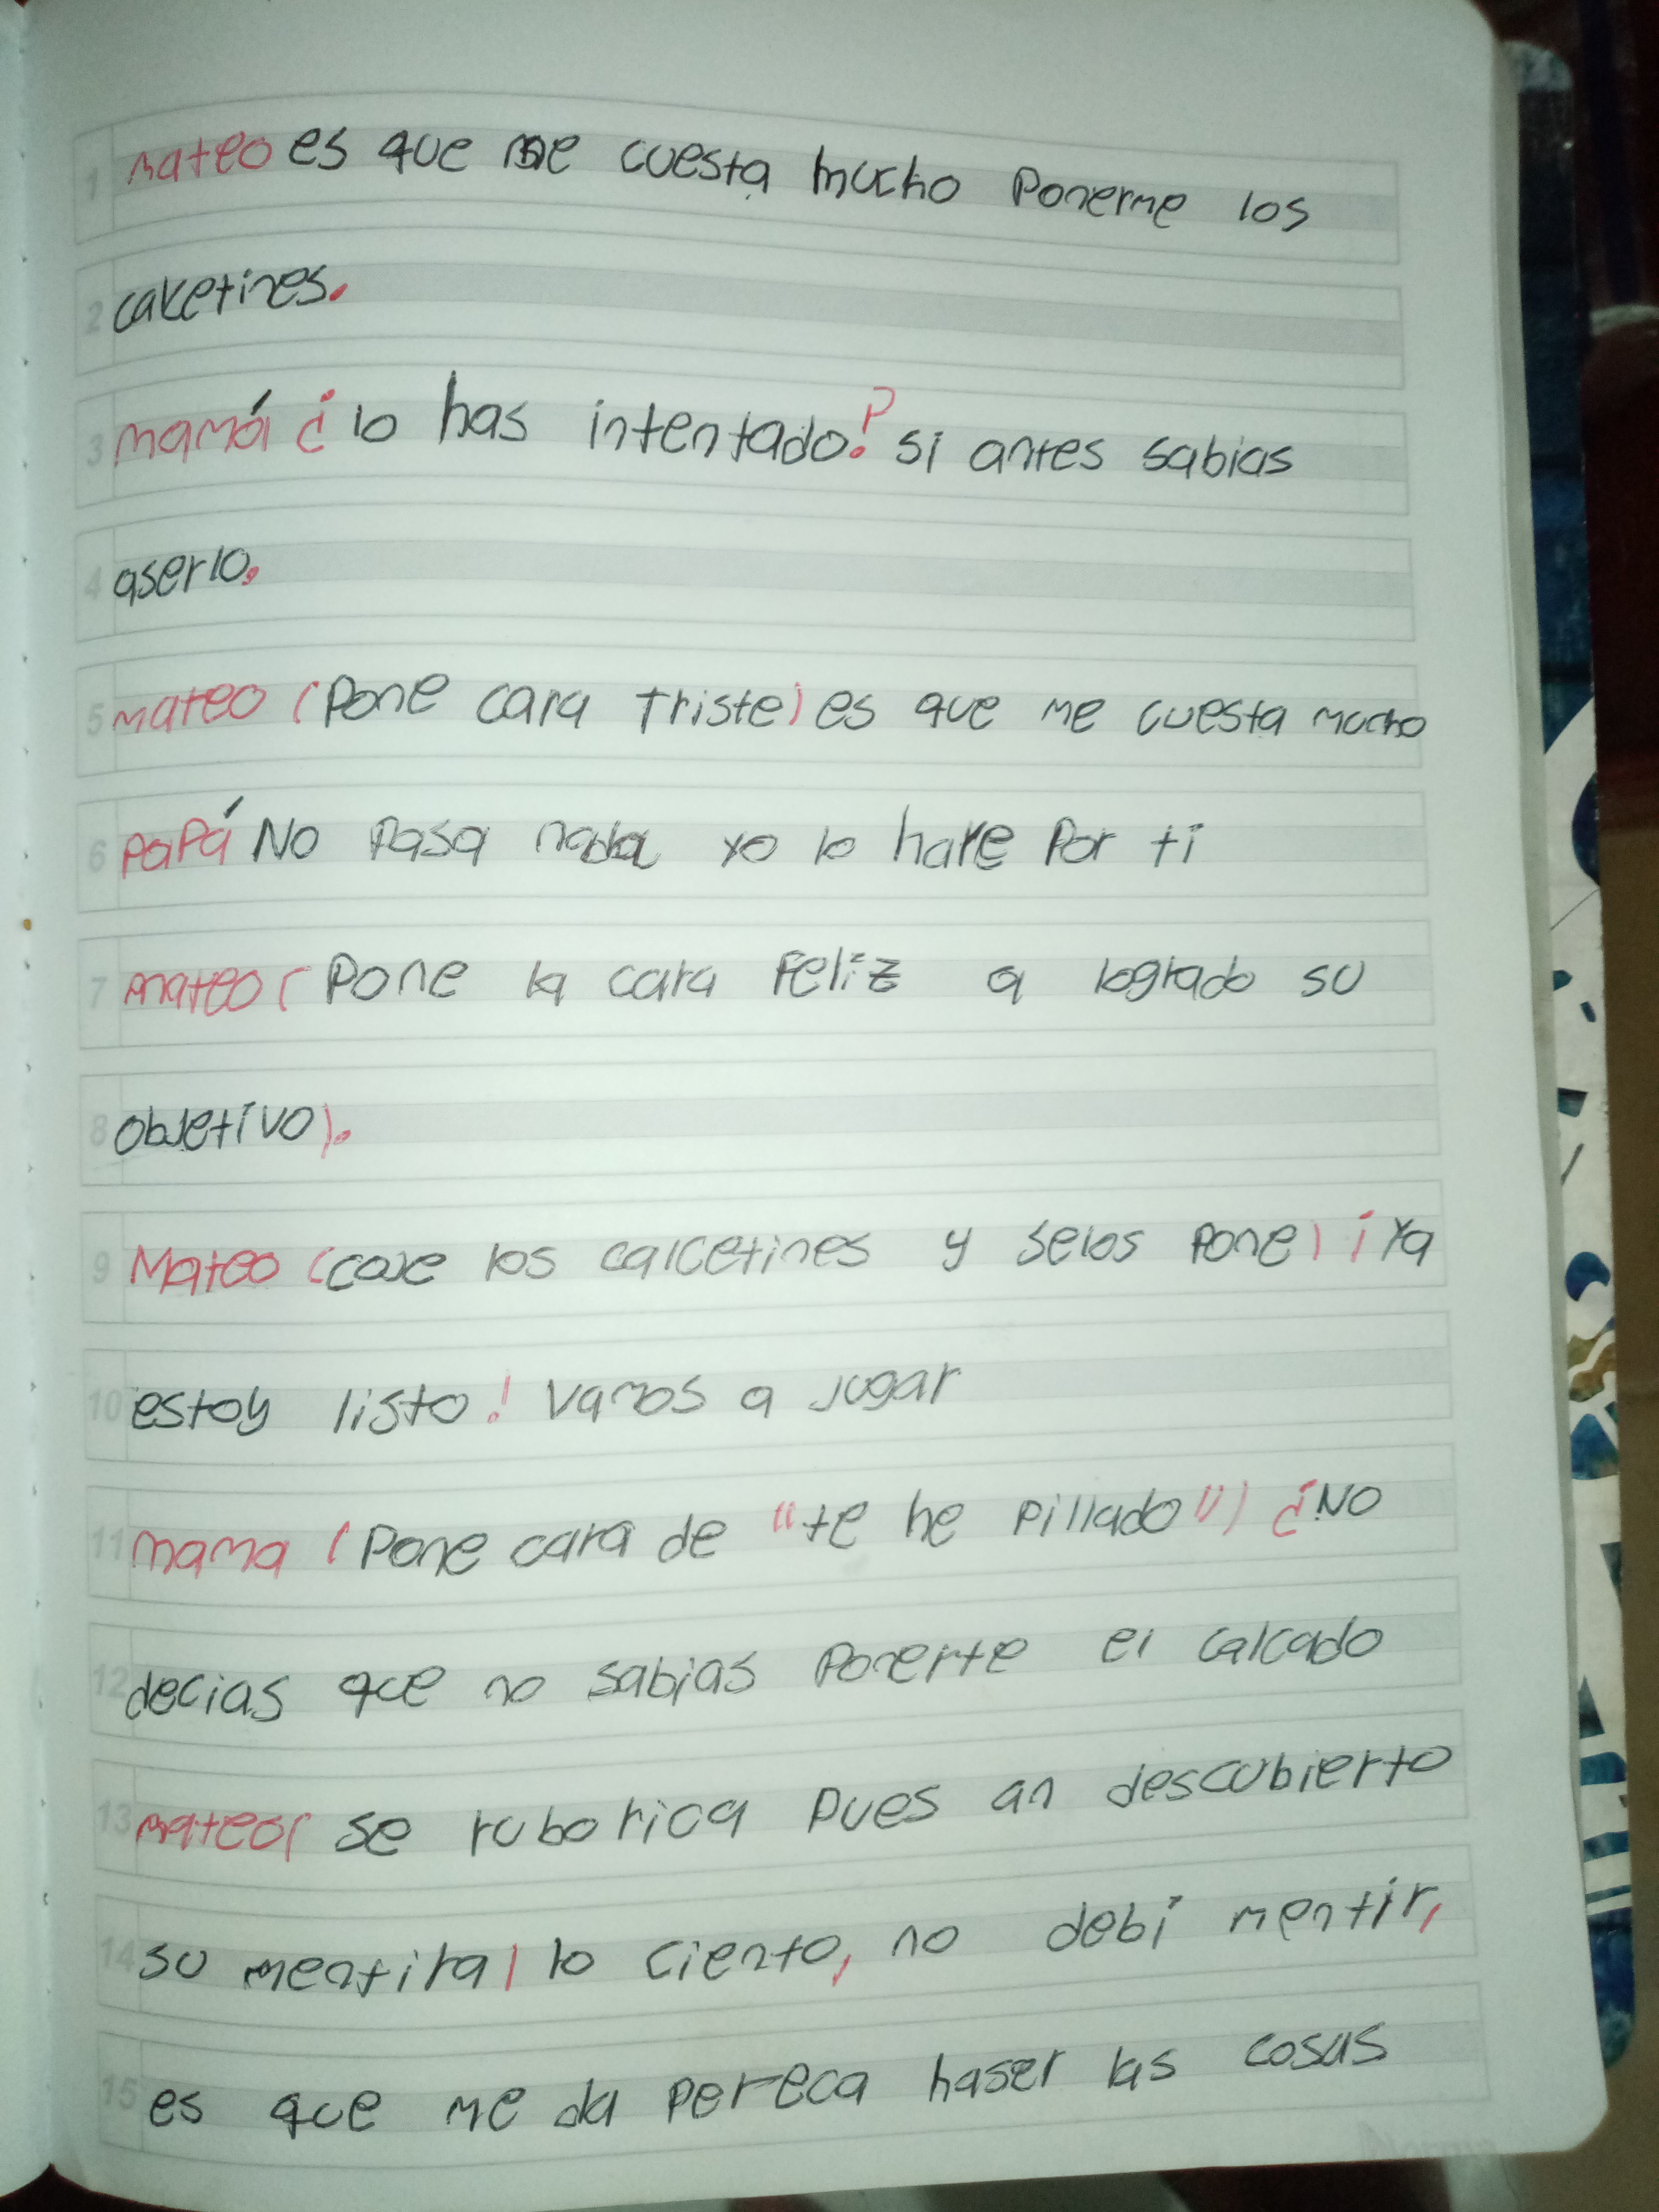 mateo es que me cuesta mucho ponerme los
calcetines.
mamá ¿lo has intentado? si antes sabias
aserlo.
mateo (Pone cara triste) es que me cuesta mucho
papá No pasa nada yo lo hare por ti
mateo (Pone la cara feliz a logrado su
objetivo).
Mateo (coje los calcetines y selos pone) ¡Ya
estoy listo! vamos a jugar
mama (Pone cara de "te he pillado") ¿No
decias que no sabias ponerte el calcado
mateo( se ruborica pues an descubierto
su mentira) lo ciento, no debi mentir,
es que me da pereca haser las cosas